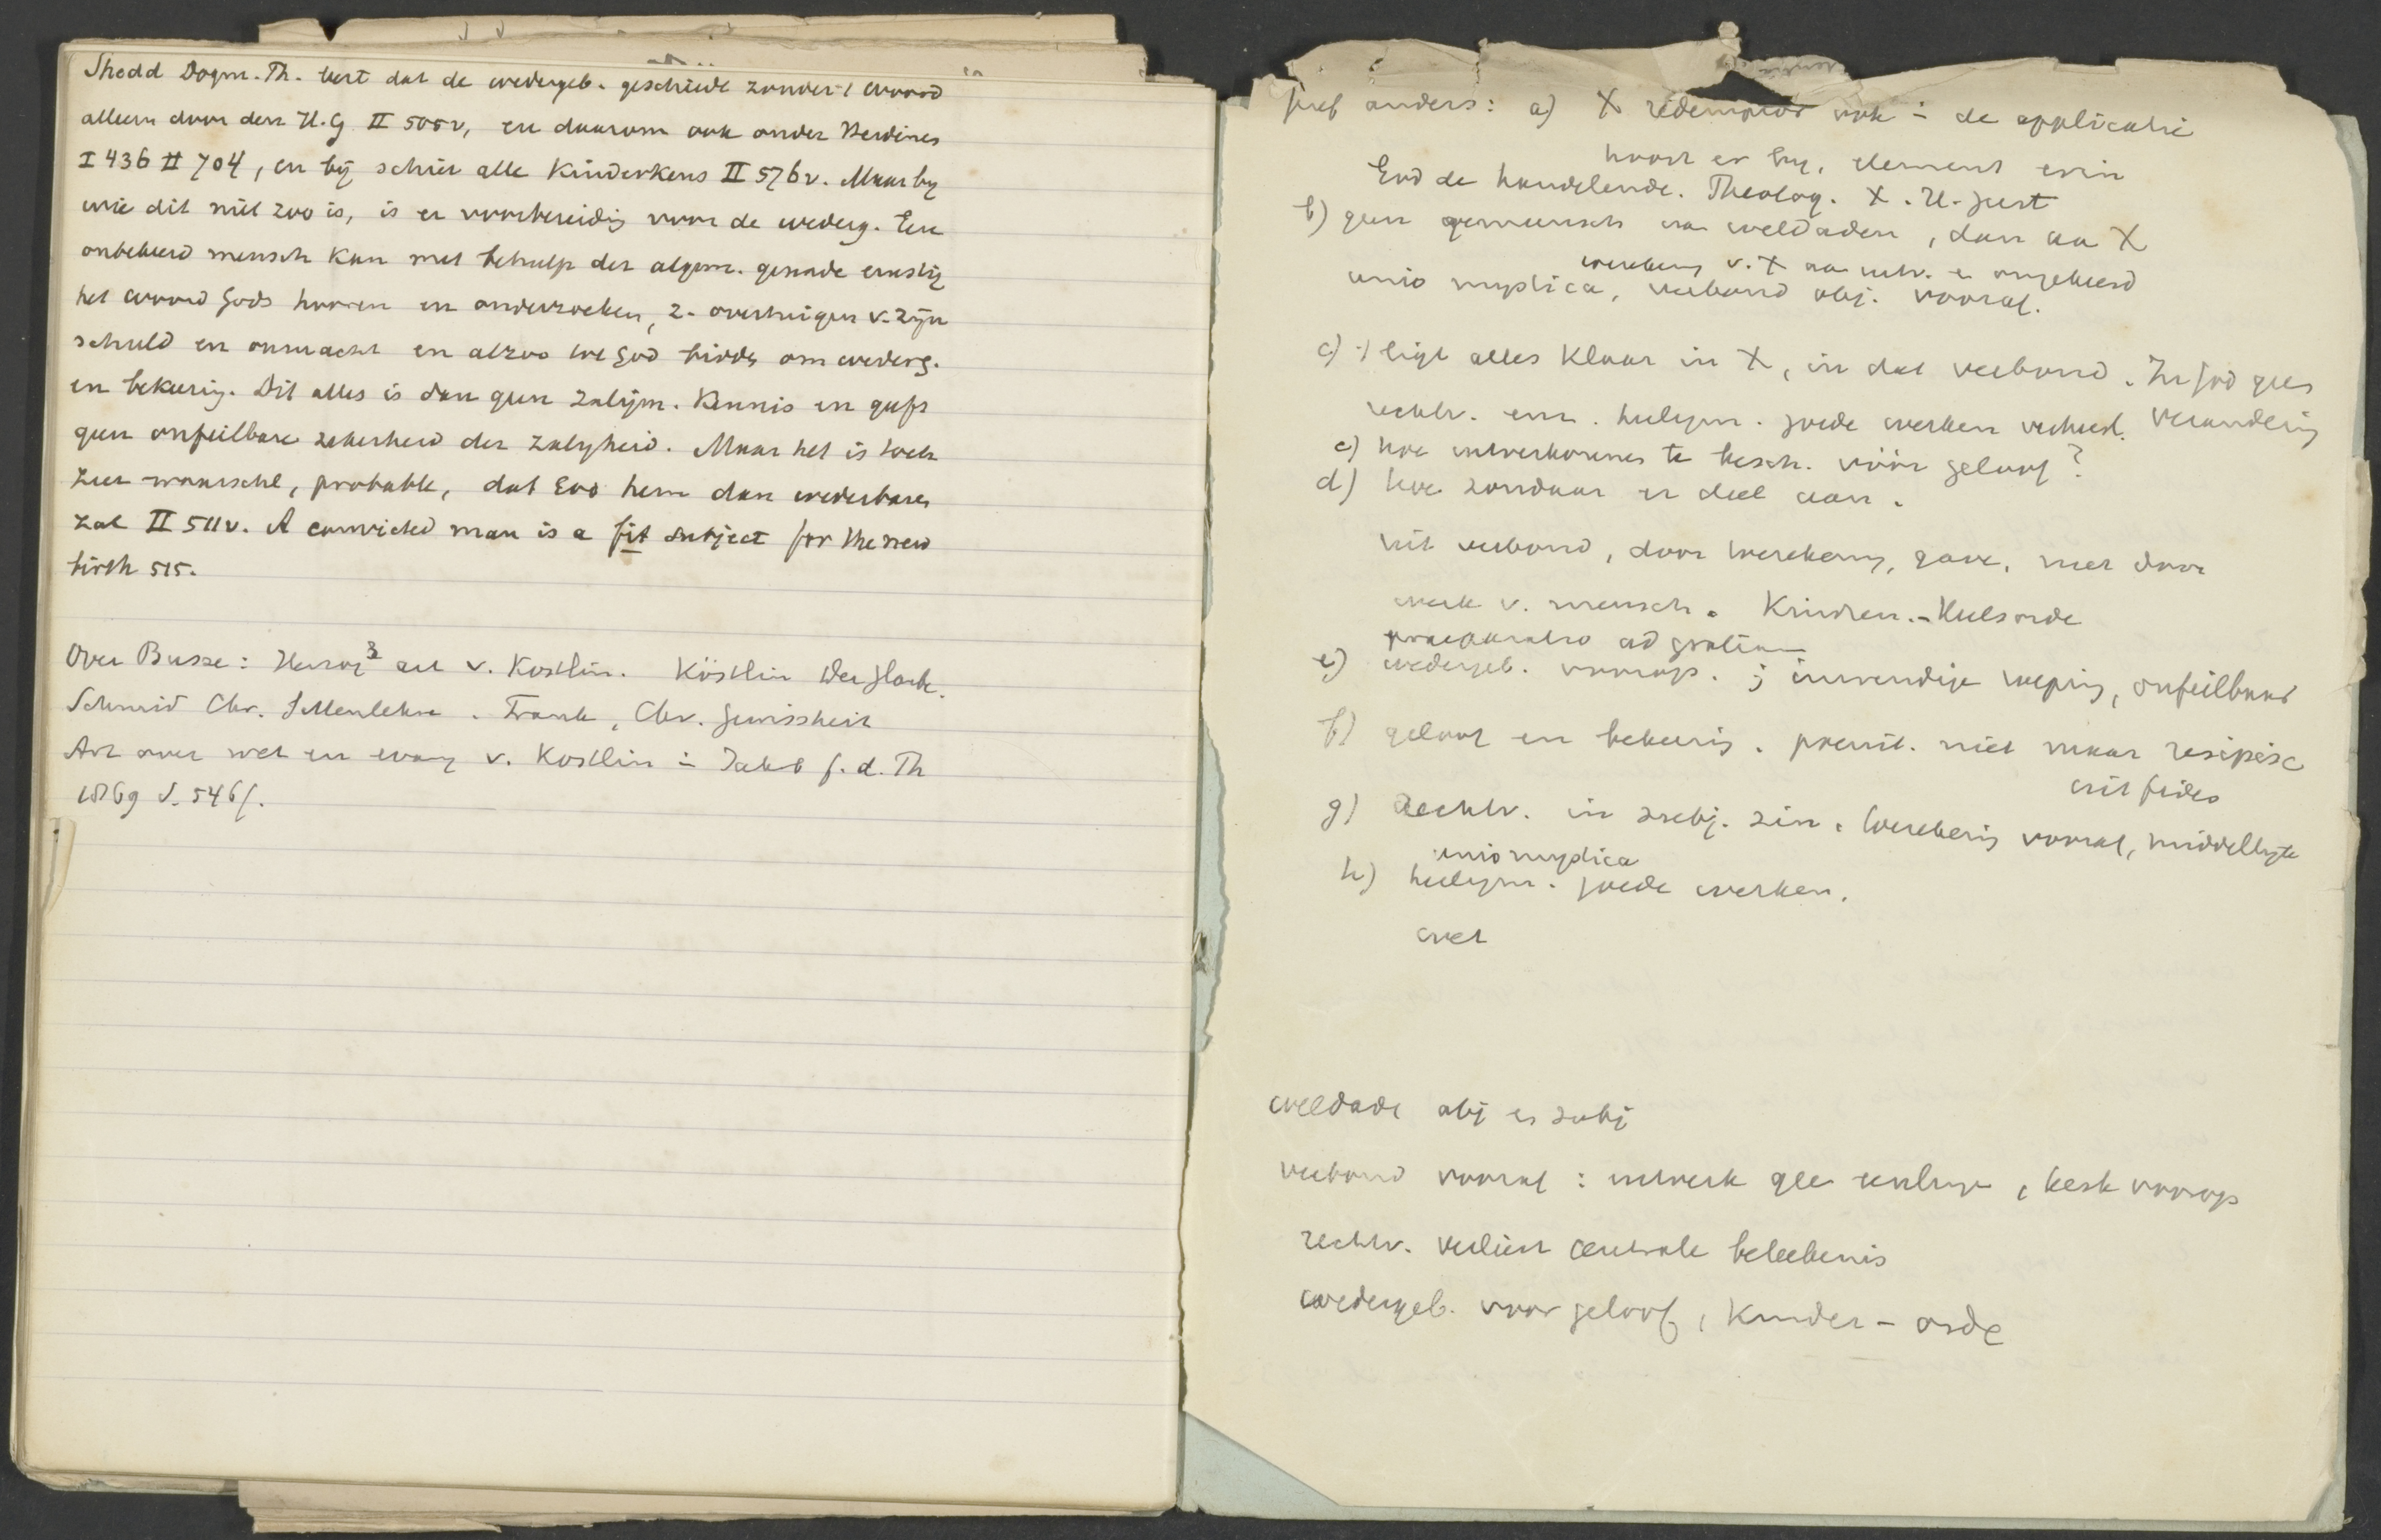 Shedd Dogm. Th. leert dat de wedergeb. geschiede zonder 't woord
alleen door den H.G. II 505v, en daarom ook onder Heidenen
I 436 II 704, en bij schier alle kinderkens II 576v. Maar by
wie dit niet zoo is, is er voorbereidig voor de wederg. Een
onbekeerd mensch kan met behulp der algem. genade ernstig
het woord Gods hooren en onderzoeken, z. overtuigen v. zijn
schuld en onmacht en alzoo tot God bidden om wederg.
en bekeerig. Dit alles is dan geen zaligm. kennis en geeft
geen onfeilbare zekerheid der zaligheid. Maar het is toch
zeer waarschl, probable, dat God hem dan wederbaren
zal II 511v. A convicted man is a fit subject for the new
birth 515.
Over Busse: Herzog³ art v. Köstlin. Köstlin Der Glaube.
Schmid Chr. Sittenlehre. Frank, Chr. Gewissheit
Art over wet en evang v. Köstlin in Jahrb f. d. Th
1869 S. 546f.
Geref anders: a) X redemptor ook in de applicatie
hoort er by, element erin
God de handelende. Theolog. X. H. Geest
b) geen gemeensch aan weldaden, dan aan X
toerekening v. X aan uitv. en omgekeerd
unio mystica, verbond obj. vooraf.
c) 't ligt alles klaar in X, in dat verbond. In God geen
verandering
rechtv. em. heiligm. goede werken verheerl.
c) hoe uitverkorenen te besch. vóór geloof?
d) hoe zondaar er deel aan.
uit verbond, door toerekening, gave, niet door
werk v. mensch. Kinderen. - Heilsorde
praeparatio ad gratiam
e) wedergeb. voorop. ; inwendige roeping, onfeilbaar
f) geloof en bekeerig. poenit. niet maar resipisc
uit fides
g) Rechtv. in subj. zin. toerekenig vooraf, middellijke
unio mystica
h) heiligm. goede werken.
wet
weldade obj en subj
verbond vooraf: uitwerk , kerk voorop
rechtv. verliest centrale beteekenis
wedergeb. voor geloof, kinder - orde